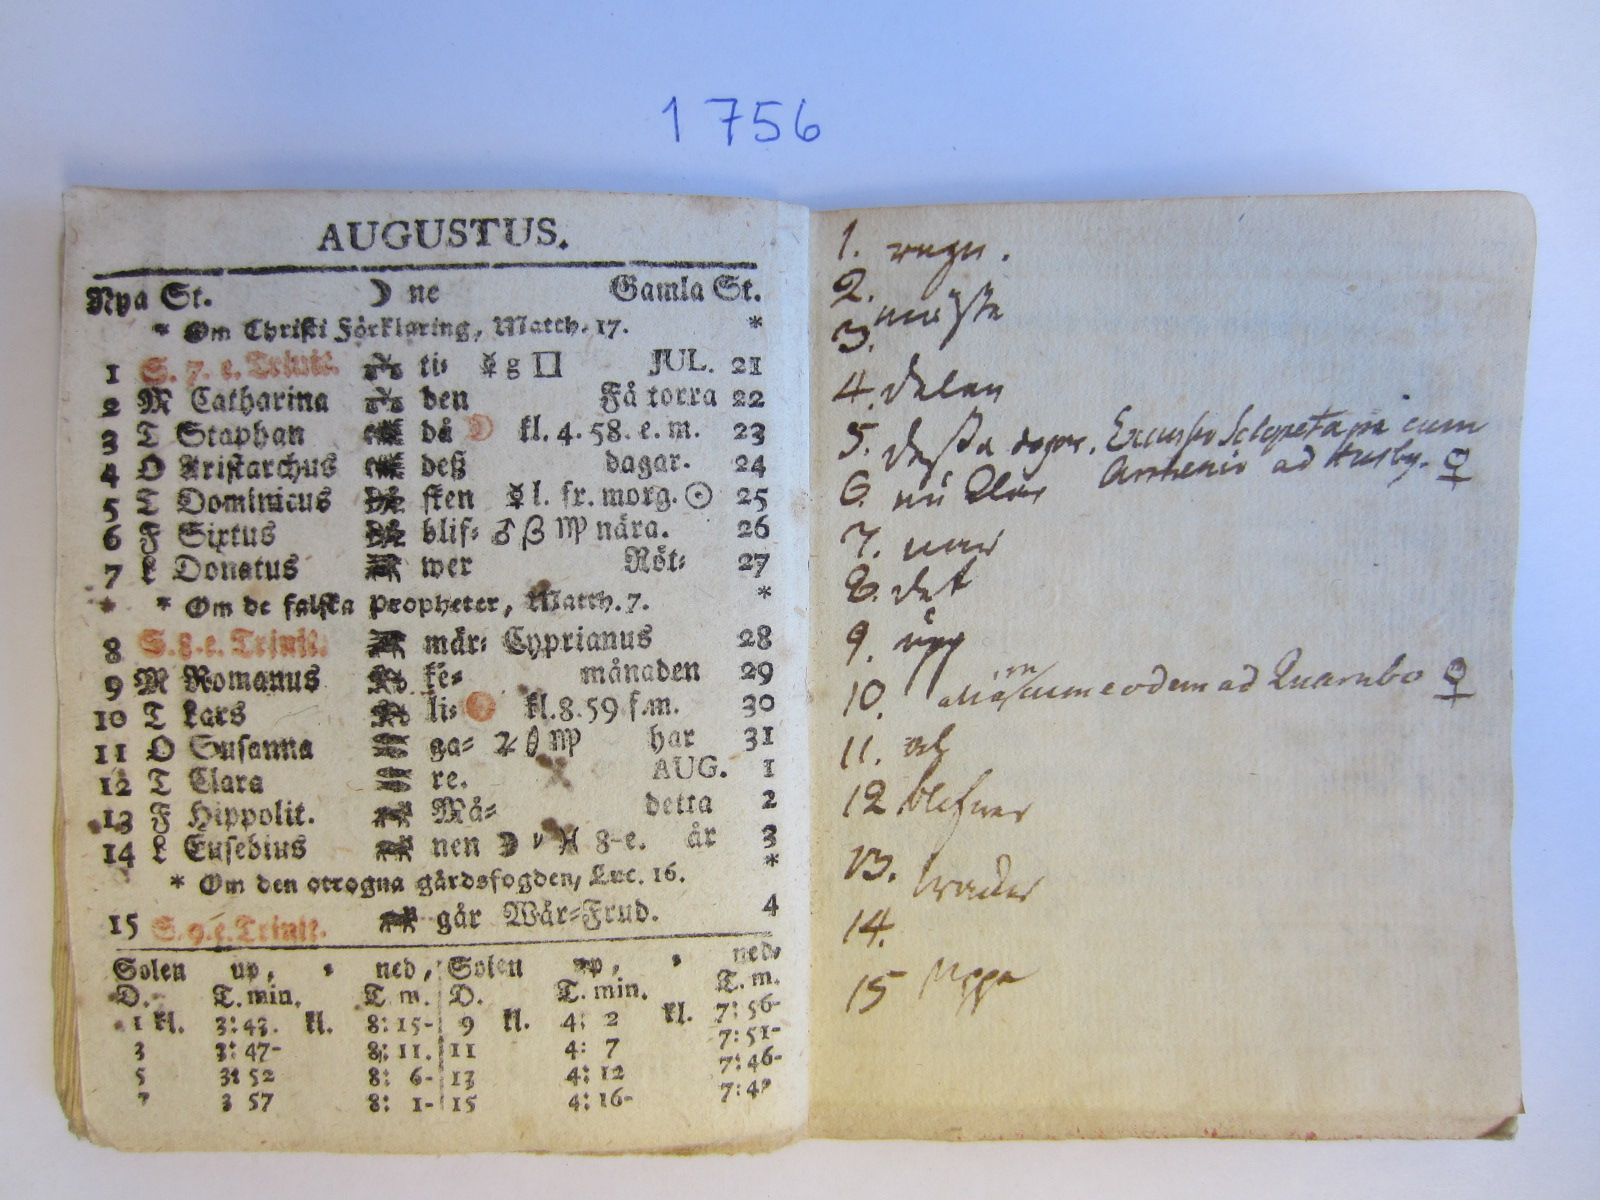 1756
AUGUSTUS.
Nya St. ☽ ne Gamla St.
* Om Christi Förklaring, Matth. 17. *
1 S. 7. e. Trinit. ti= ☿ g □ JUL. 21
2 M Catharina den Få torra 22
3 T Staphan då kl. 4. 58. e. m. 23
4 O Aristarchus deß dagar. 24
5 T Dominicus sken ☿ l. fr. morg. ☉ 25
6 F Sixtus blif= ♂ β ♍ nära. 26
7 L Donatus wer Röt= 27
* * Om de falska Propheter, Matth. 7. *
8 S. 8. e. Trinit. mär= Cyprianus 28
9 M Romanus ke= månaden 29
10 T Lars li= kl. 8. 59 f. m. 30
11 O Susanna ga= ♃ ♍ har 31
12 T Clara re. AUG. 1
13 F Hippolit. Må= detta 2
14 L Eusebius nen ☽ 8-e. år 3
* Om den otrogna gårdsfogden, Luc. 16. *
15 S. 9. e. Trinit. går Wår=Frud. 4
Solen up, ned, Solen up, ned=
D. T. min. T. m. D. T. min. T. m.
1 kl. 3: 43. kl. 8: 15- 9 kl. 4: 2 kl. 7: 56-
3 3: 47- 8: 11. 11 4: 7 7: 51-
5 3: 52 8: 6- 13 4: 12 7: 46-
7 3 57 8: 1- 15 4: 16- 7: 4
1. regn.
2.
mäste
3.
4. delen
5. dessa dagar. Excursio Sclopetaria cum
Arrhenio ad Husby. ♀
6. nu
7. war
8. det
9. upp
10. cum eodem ad Quarnbo ♀
11.
12 blefwer
13.
14.
15